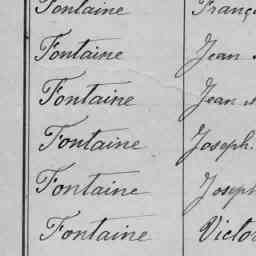 Fontaine Franç
Fontaine Jean
Fontaine Jean
Fontaine Joseph.
Fontaine Joseph
Fontaine Victo